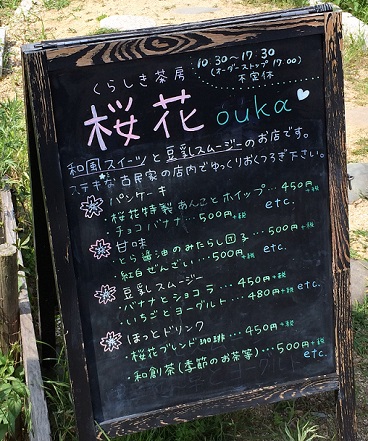 くらしき茶房
10:30〜17:30
(オーダーストップ 17:00)
不定休
桜花 ouka
和風スイーツと豆乳スムージーのお店です。
ステキな古民家の店内でゆっくりおくつろぎ下さい。
パンケーキ
・桜花特製あんことホイップ…450円+税
・チョコバナナ…500円+税 etc.
甘味
・とら醤油のみたらし団子…500円+税
・紅白ぜんざい…550円+税 etc.
豆乳スムージー
・バナナとショコラ…450円+税
・いちごとヨーグルト…480円+税 etc.
ほっとドリンク
・桜花ブレンド珈琲…450円+税
・和創茶(季節のお茶等)…500円+税 etc.